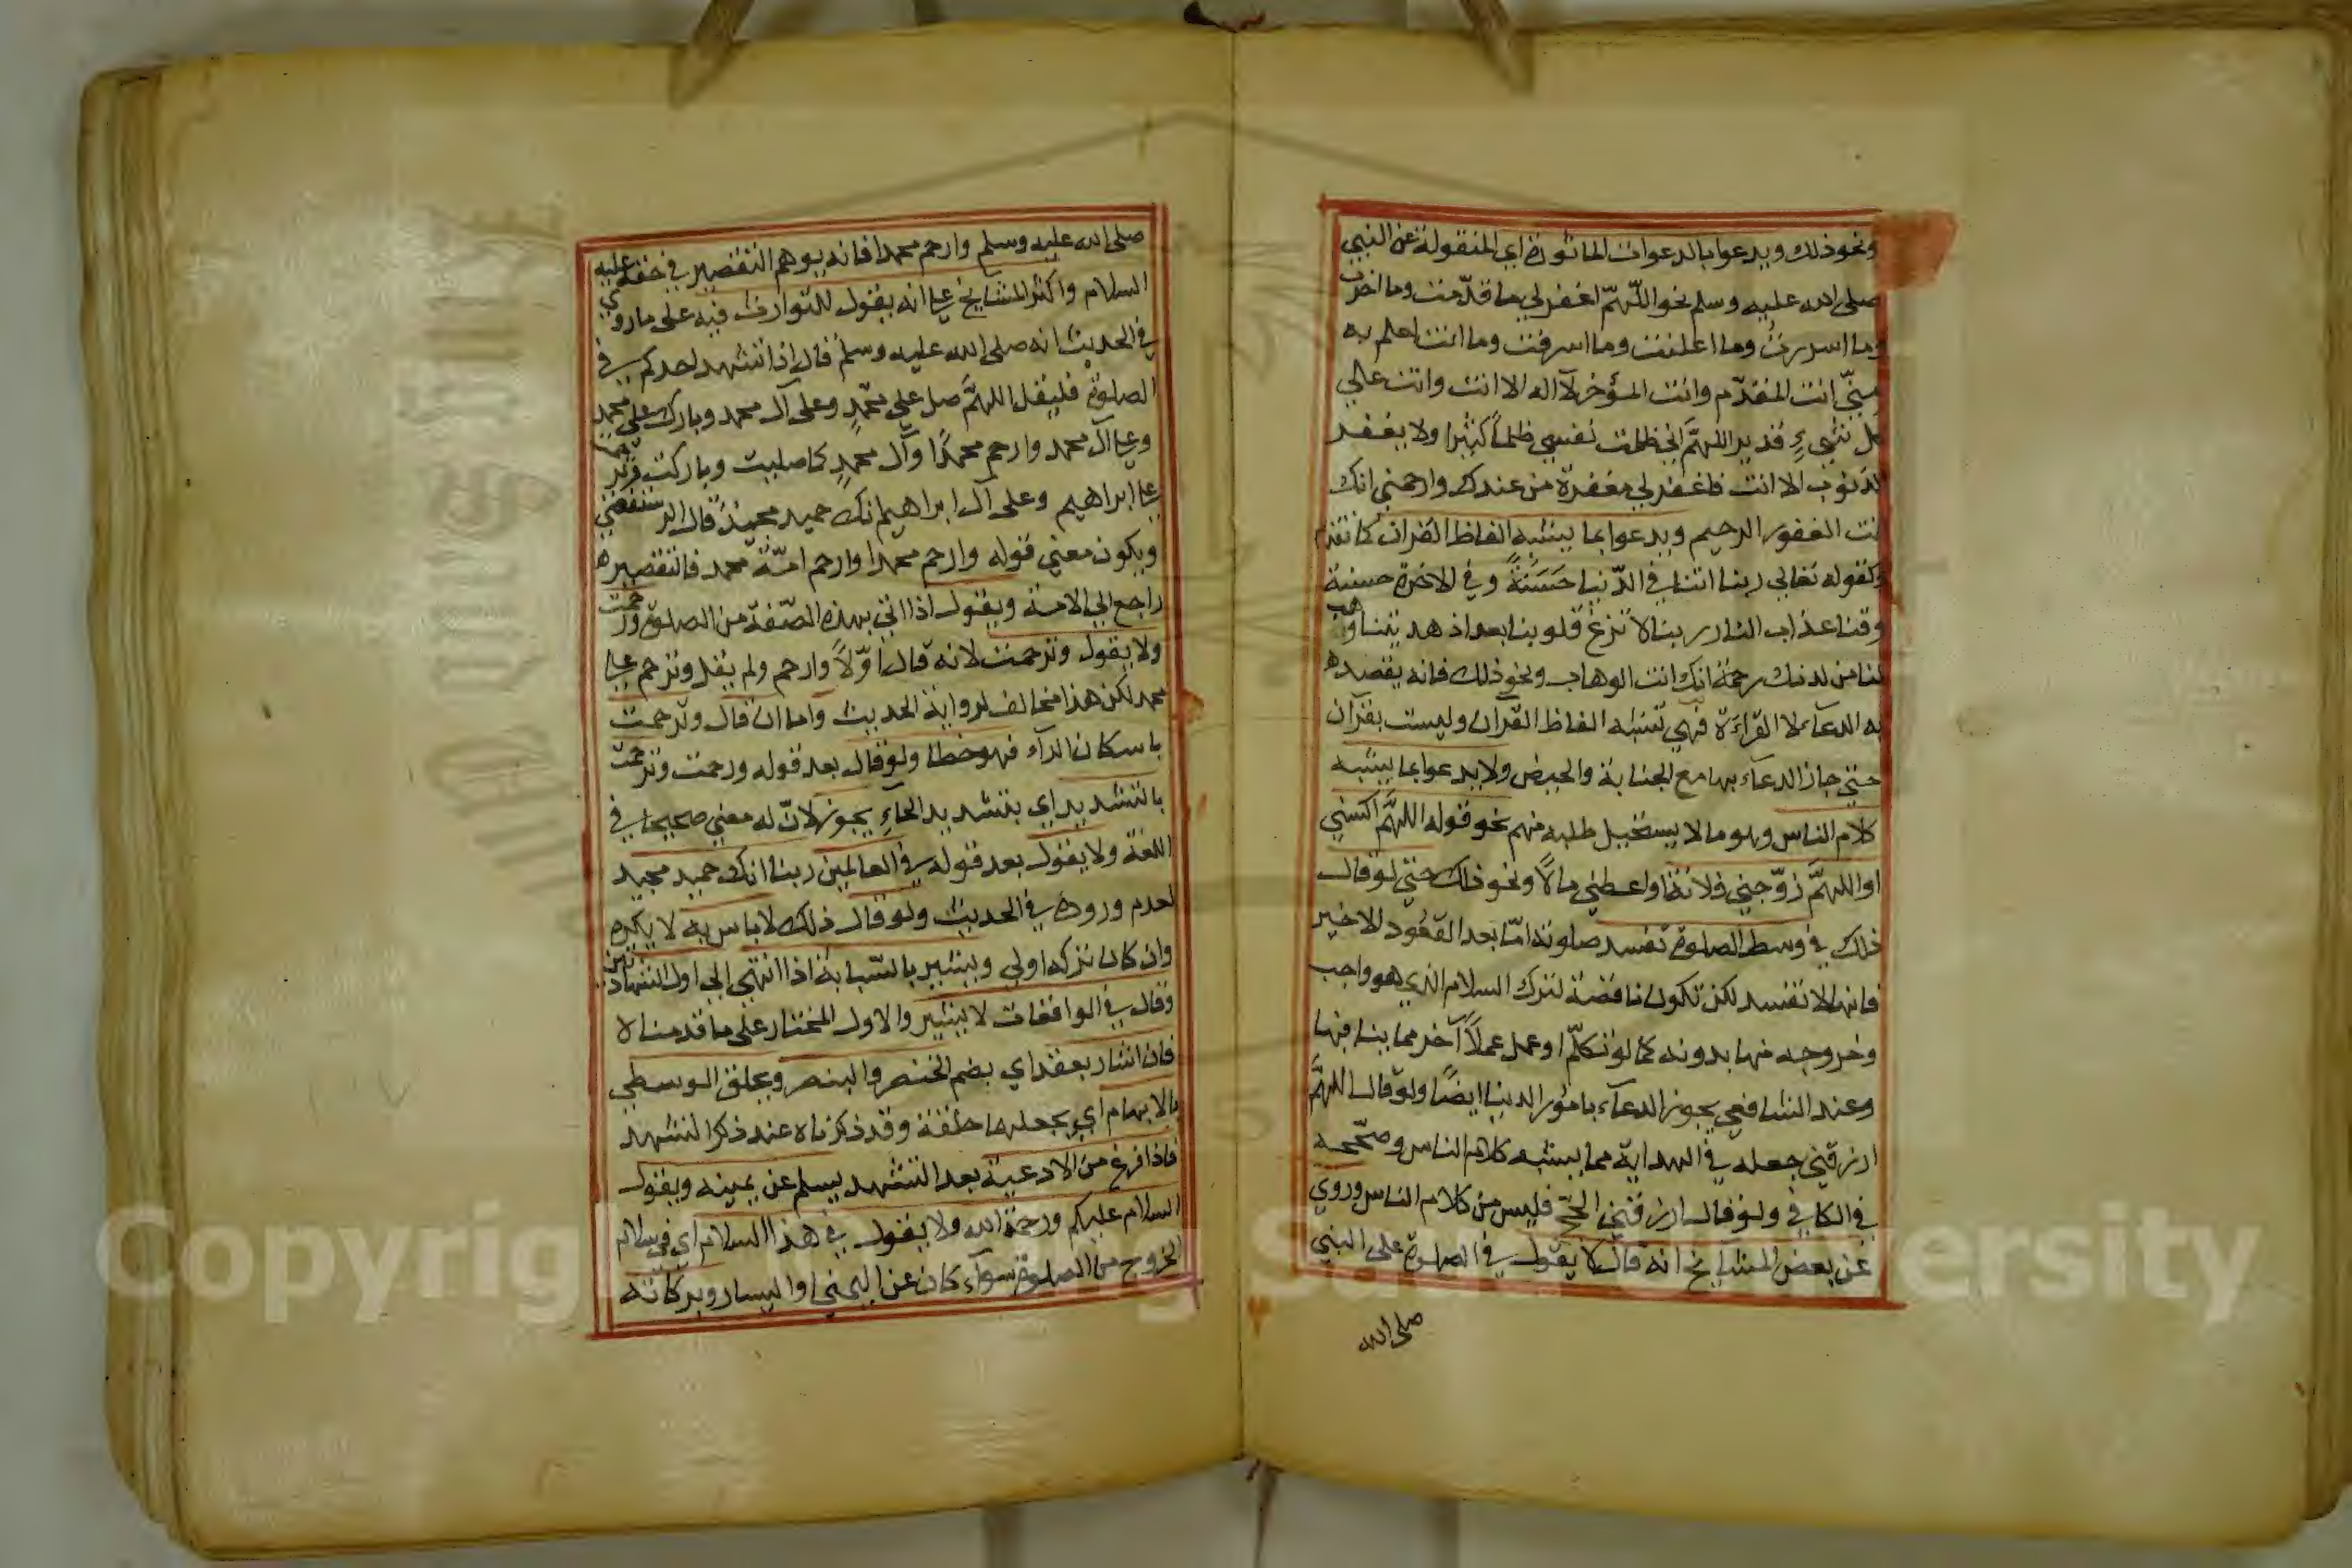 ونحو ذلك ويدعوا بالدعوات الماثورة اي المنقولة عن النبي
صلى الله عليه وسلم نحو اللهمّ اغفر لي ما قدّمت وما اخرت
وما اسررت وما اعلنت وما اسرفت وما انت اعلم به
منيّ انت المقدّم وانت المؤخر لآ اله الا انت وانت علي
كل شيءٍ قدير اللهمَّ اني ظلمت نفسي ظلماً كثيرا ولا يغفر
الذنوب الا انت فاغفر لي مغفرة من عندك وارحمني انك
انت الغفور الرحيم ويدعوا بما يشبه الفاظ القران كما تقدم
وكقوله تعالي ربنا اتنا في الدّنيا حَسَنةً وفي الاخرة حسنة
وقنا عذاب النار ربنا لا تزغ قلوبنا بعد اذ هديتنا وهب
لنا من لدنك رحمة انك انت الوهاب ونحو ذلك فانه يقصد
به الدعآء لا القرآءة فهي تشبه الفاظ القرآن وليست بقرآن
حتي جاز الدعآء بها مع الجنابة والحيض ولا يدعوا بما يشبه
كلام الناس وهو ما لا يستحيل طلبه منهم نحو قوله اللهمَّ اكسني
او اللهمَّ زوّجني فلانة او اعطني مالاً ونحو ذلك حتي لو قال
ذلك في وسط الصلوة تفسد صلوته امّا بعد القعود الاخير
فانها لا تفسد لكن تكون ناقصة لترك السلام الذي هو واجب
وخروجه منها بدونه كما لو تكلّم او عمل عملاً آخر مما ينافيها
وعند الشافعي يجوز الدعآء بامور الدنيا ايضاً ولو قال اللهمَّ
ارزقني جعله في الهداية مما يشبه كلام الناس وصحّحه
في الكافي ولو قال ارزقني الحجّ فليس من كلام الناس وروي
عن بعض المشايخ انه قال لا يقول في الصلوة على النبي
صلى الله
صلى الله عليه وسلم وارحم محمدا فانه يوهم التقصير في حقه عليه
السلام واكثر المشايخ على انه يقول للتوارث فيه على ما روي
في الحديث انه صلى الله عليه وسلم قال اذا تشهد احدكم في
الصلوة فليقل اللهمَّ صل على محمّدٍ وعلى آل محمد وبارك على محمد
وعلى آل محمد وارحم محمدًا وآل محمدٍ كما صليت وباركت وترحمت
على ابراهيم وعلى آل ابراهيم انك حميد مجيدٌ قال الرستغفني
ويكون معني قوله وارحم محمدا وارحم امّة محمد فالتقصير
راجع الي الامة ويقول اذا اتي بهذه الصّفة من الصلوة ورحمت
ولا يقول وترحمت لانه قال اوّلاً وارحم ولم يقل وترحم على
محمد لكن هذا مخالف لرواية الحديث واما ان قال وترحمت
باسكان الرآء فهو خطا ولو قال بعد قوله ورحمت وترحمت
بالتشديد اي بتشديد الحآءِ يجوز لانّ له معني صحيحا في
اللغة ولا يقول بعد قوله في العالمين ربنا انك حميد مجيد
لعدم وروده في الحديث ولو قال ذلك لا باس به لا يكره
وان كان تركه اولي ويشير بالسّبابة اذا انتهي الي اول الشهادتين
وقال في الواقعات لا يشير والاول المختار على ما قدمناه
فان اشار يعقد اي يضم الخنصر والبنصر ويحلق الوسطي
بالابهام اي يجعلها حلقة وقد ذكرناه عند ذكر التشهد
فاذا فرغ من الادعية بعد التشهد يسلم عن يمينه ويقول
السلام عليكم ورحمة الله ولا يقول في هذا السلام اي في سلام
الخروج من الصلوة سوآء كان عن اليمني او اليسار وبركاته